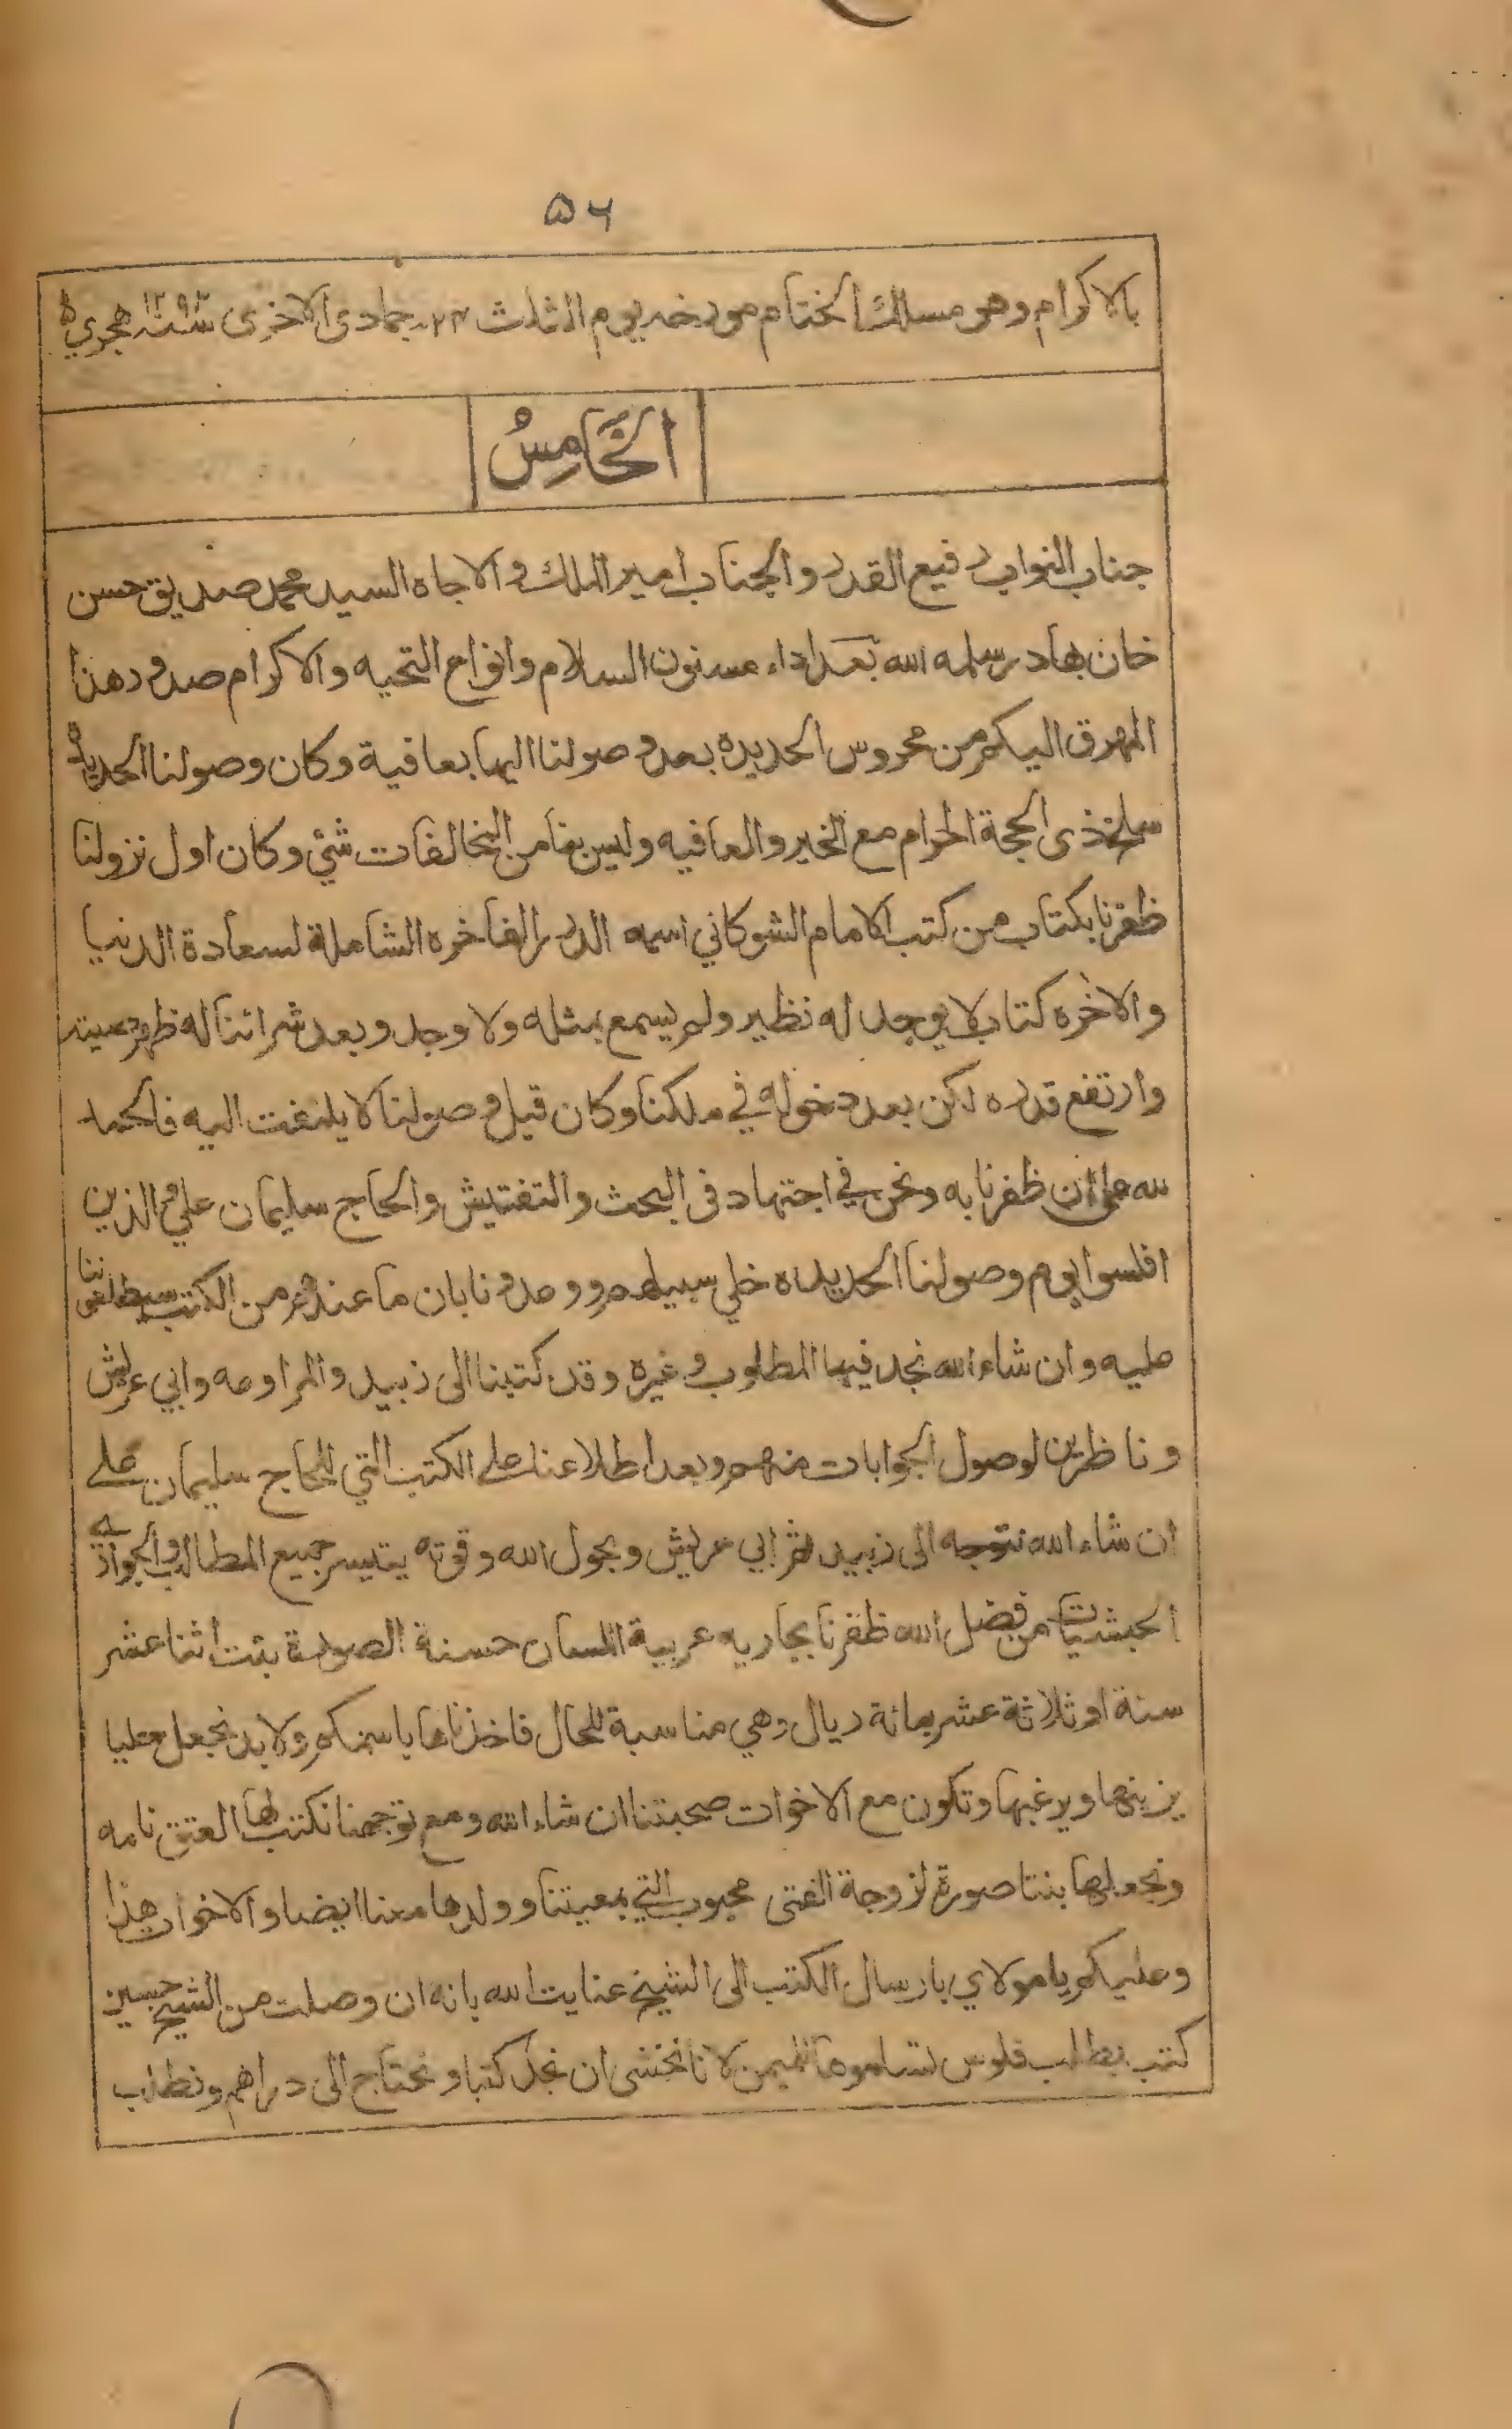 ٥٦
بالاكرام وهو مسك الختام مورخه يوم الثلاث ٢٣ جمادى الاخرى سنة ١٢٩٣ هجري
الخَامِسُ
جناب النواب رفيع القدر والجناب امير الملك والاجاه السيد محمد صديق حسن
خان بهادر سلمه الله بعد اداء مسنون السلام وانواع التحيه والاكرام صدور هذا
المهرق اليكم من محروس الحديده بعد وصولنا اليها بعافية وكان وصولنا الحديده
سلخ ذى الحجة الحرام مع الخير والعافيه وليس بنا من المخالفات شئي وكان اول نزولنا
ظفرنا بكتاب من كتب الامام الشوكاني اسمه الدرر الفاخره الشاملة لسعادة الدنيا
والاخره كتاب لا يوجد له نظير ولم يسمع بمثله ولا وجد وبعد شرائنا له ظهر صيته
وارتفع قدره لكن بعد دخوله في ملكنا وكان قبل وصولنا لا يلتفت اليه فالحمد
لله على ان ظفرنا به ونحن في اجتهاد فى البحث والتفتيش والحاج سليمان علي الذين
افلسوا يوم وصولنا الحديده خلي سبيلهم ووعدونا بان ما عندهم من الكتب سيطلعوننا
عليه وان شاء الله نجد فيها المطلوب وغيره وقد كتبنا الى زبيد والمراوعه وابي عريش
وناظرين لوصول الجوابات منهم وبعد اطلاعنا على الكتب التي للحاج سليمان على
ان شاء الله نتوجه الى زبيد ثم ابي عريش وبحول الله وقوته يتيسر جميع المطالب والجوارى
الحبشيات من فضل الله ظفرنا بجاريه عربية اللسان حسنة الصورة بنت اثنا عشر
سنة او ثلاثة عشر بمائة ريال وهي مناسبة للحال فاخذناها باسمكم ولا بد نجعل حليا
يزينها ويرغبها وتكون مع الاخوات صحبتنا ان شاء الله ومع توجهنا نكتب لها العتق نامه
ونجعلها بنتا صورة لزوجة الفتى محبوب التي بمعيتنا وولدها معنا ايضا والاخوات هذا
وعليكم يا مولاي بارسال الكتب الى الشيخ عنايت الله بانه ان وصلت من الشيخ حسين
كتب بطلب فلوس لانا نخشى ان نجد كتبا ونحتاج الى دراهم ونطلب